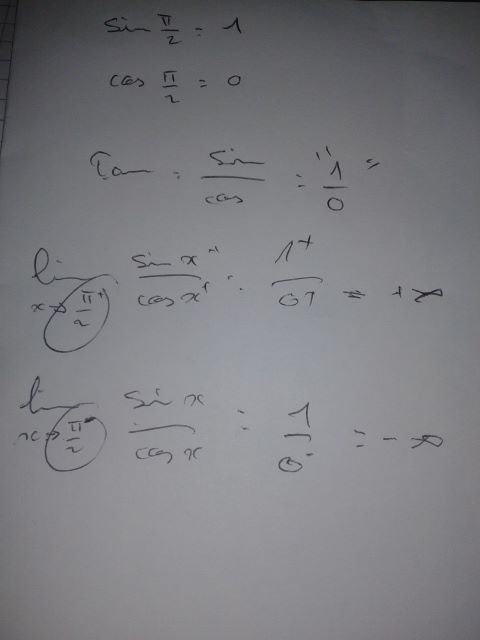 sin π/2 = 1
cos π/2 = 0
Tan = sin/cos = "1/0"
lim x→π/2⁺ sin x/cos x = 1⁺/0⁺ = +∞
lim x→π/2⁻ sin x/cos x = 1/0⁻ = -∞